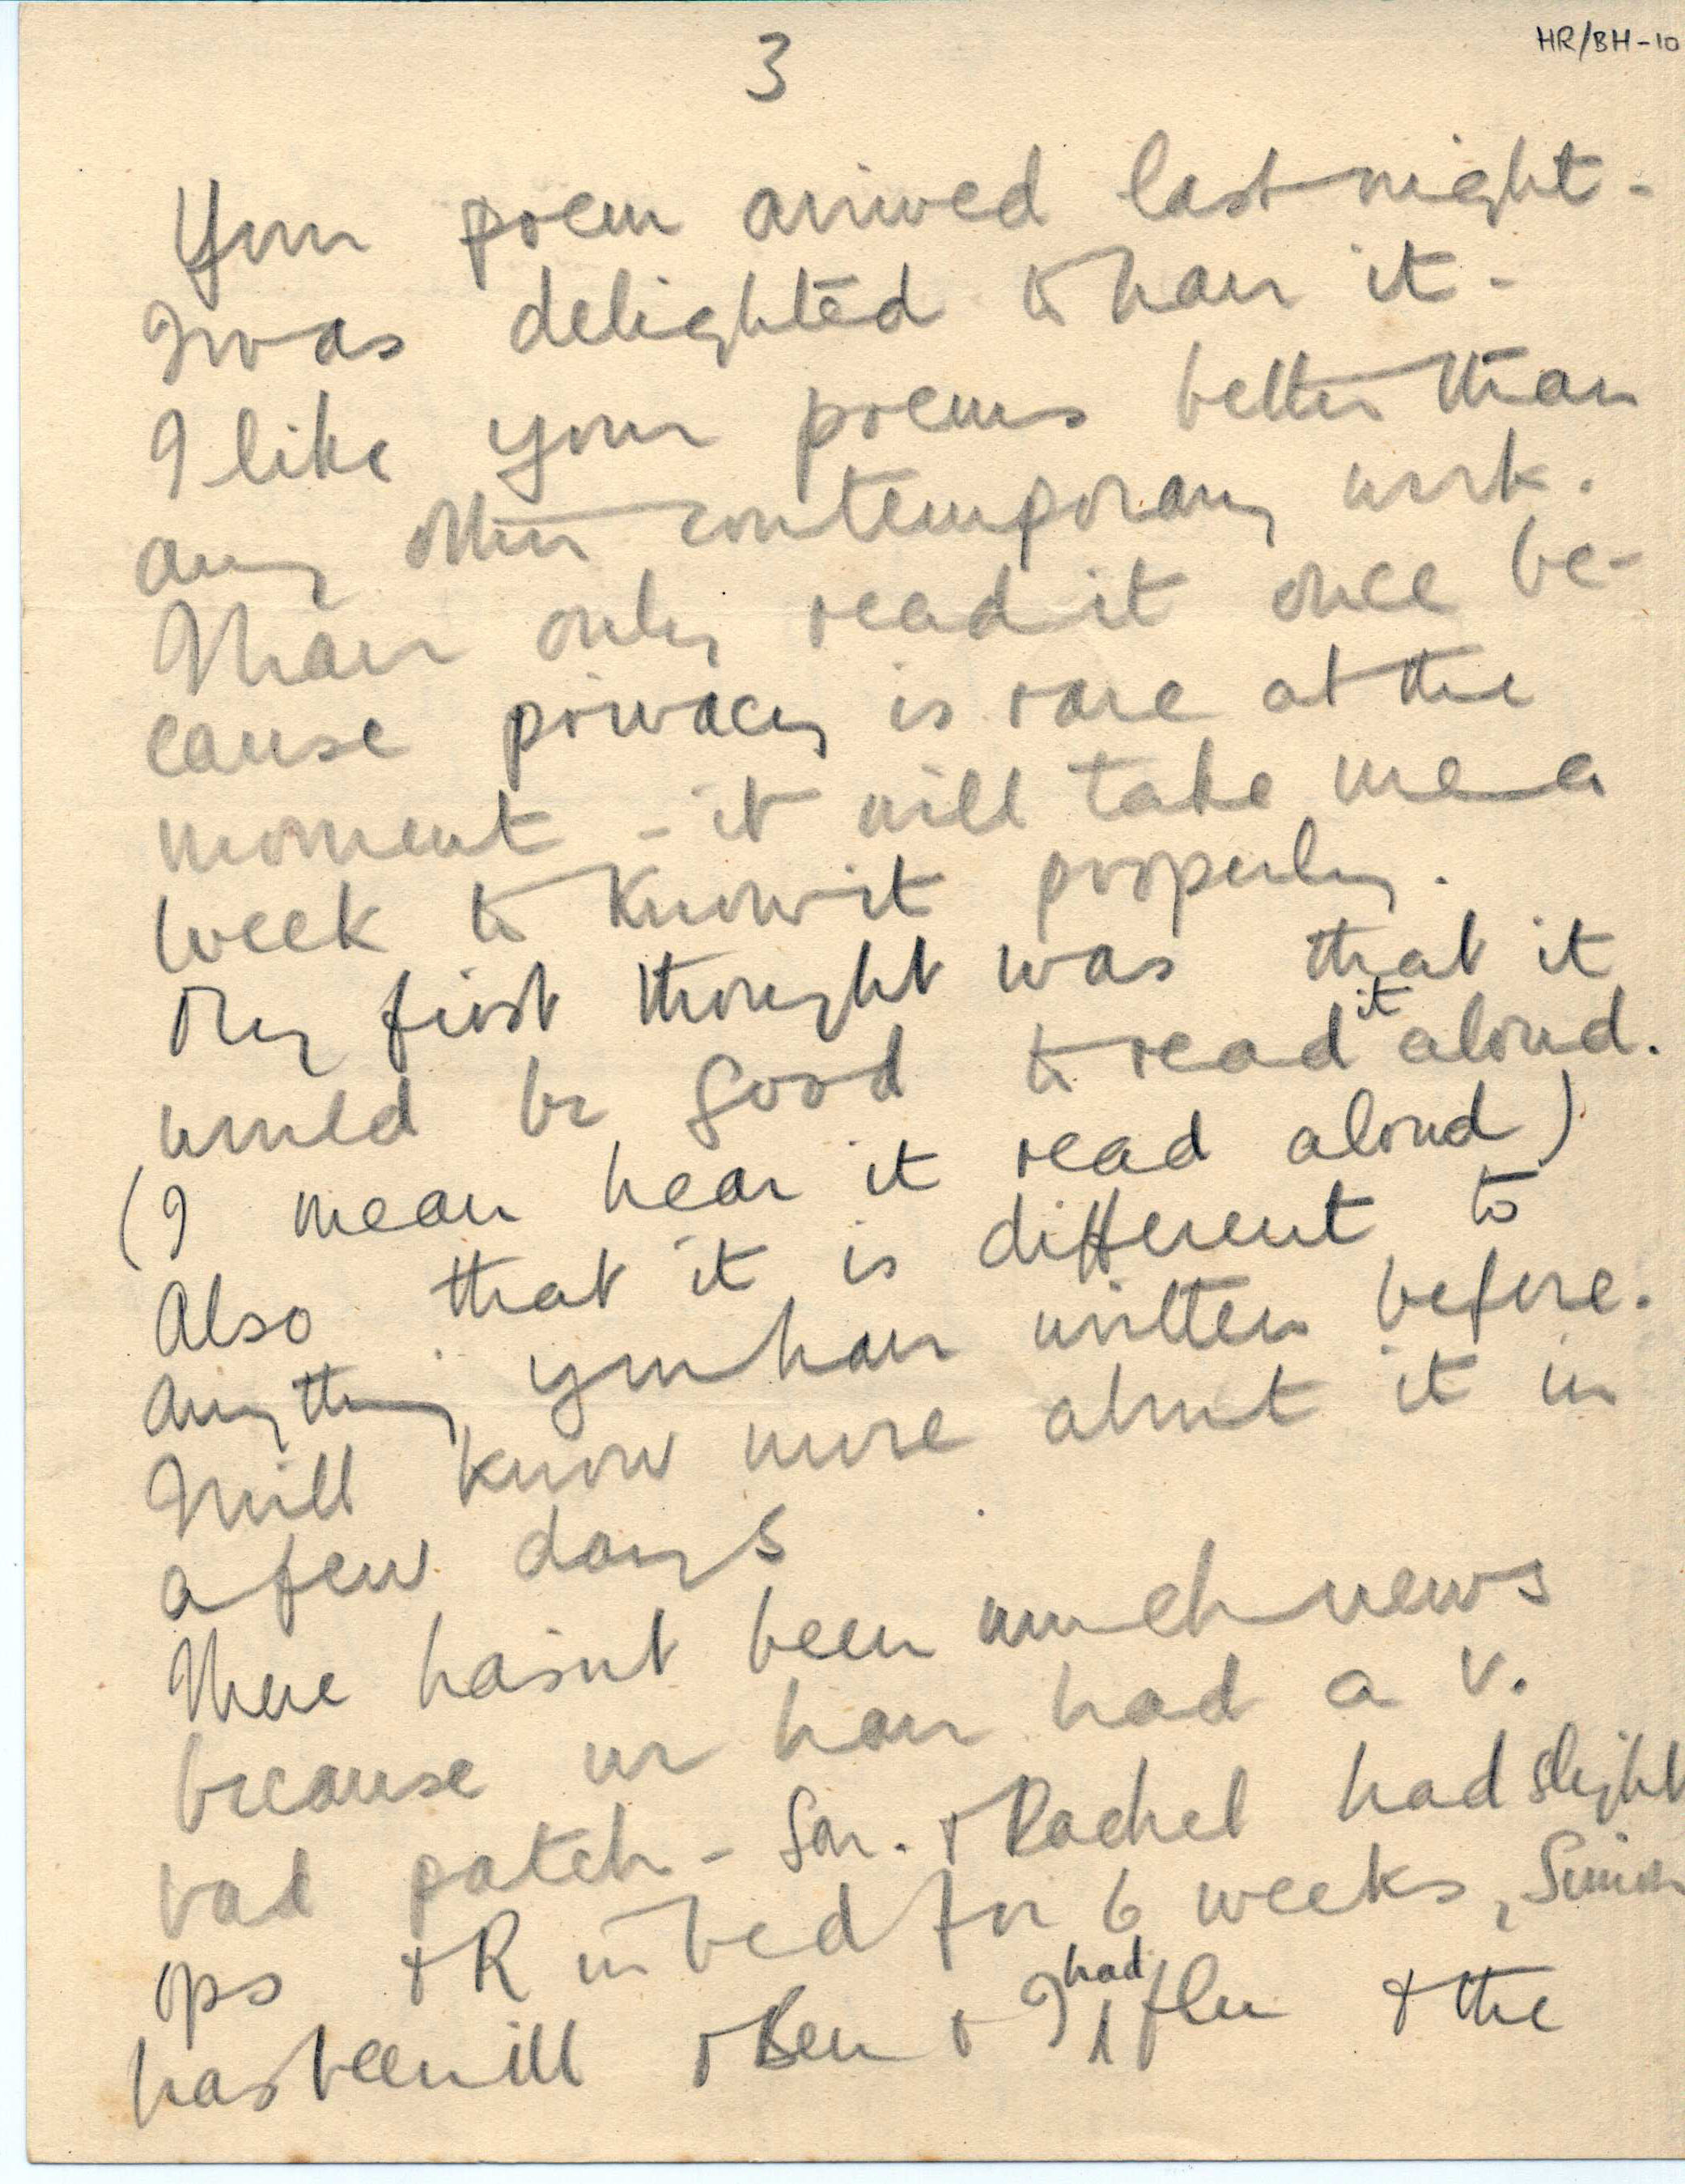 3
HR/BH-10
Your poem arrived last night -
I was delighted to have it -
I like your poems better than
any other contemporary work.
I have only read it once be-
cause privacy is rare at the
moment - it will take me a
week to know it properly.
My first thought was that it
would be good to read it aloud.
(I mean hear it read aloud)
Also that it is different to
anything you have written before.
I will know more about it in
a few days
There hasnt been much news
because we have had a v.
bad patch - Sar. & Rachel had slight
ops & R in bed for 6 weeks, Simon
has been ill & Ben & I had flu & the